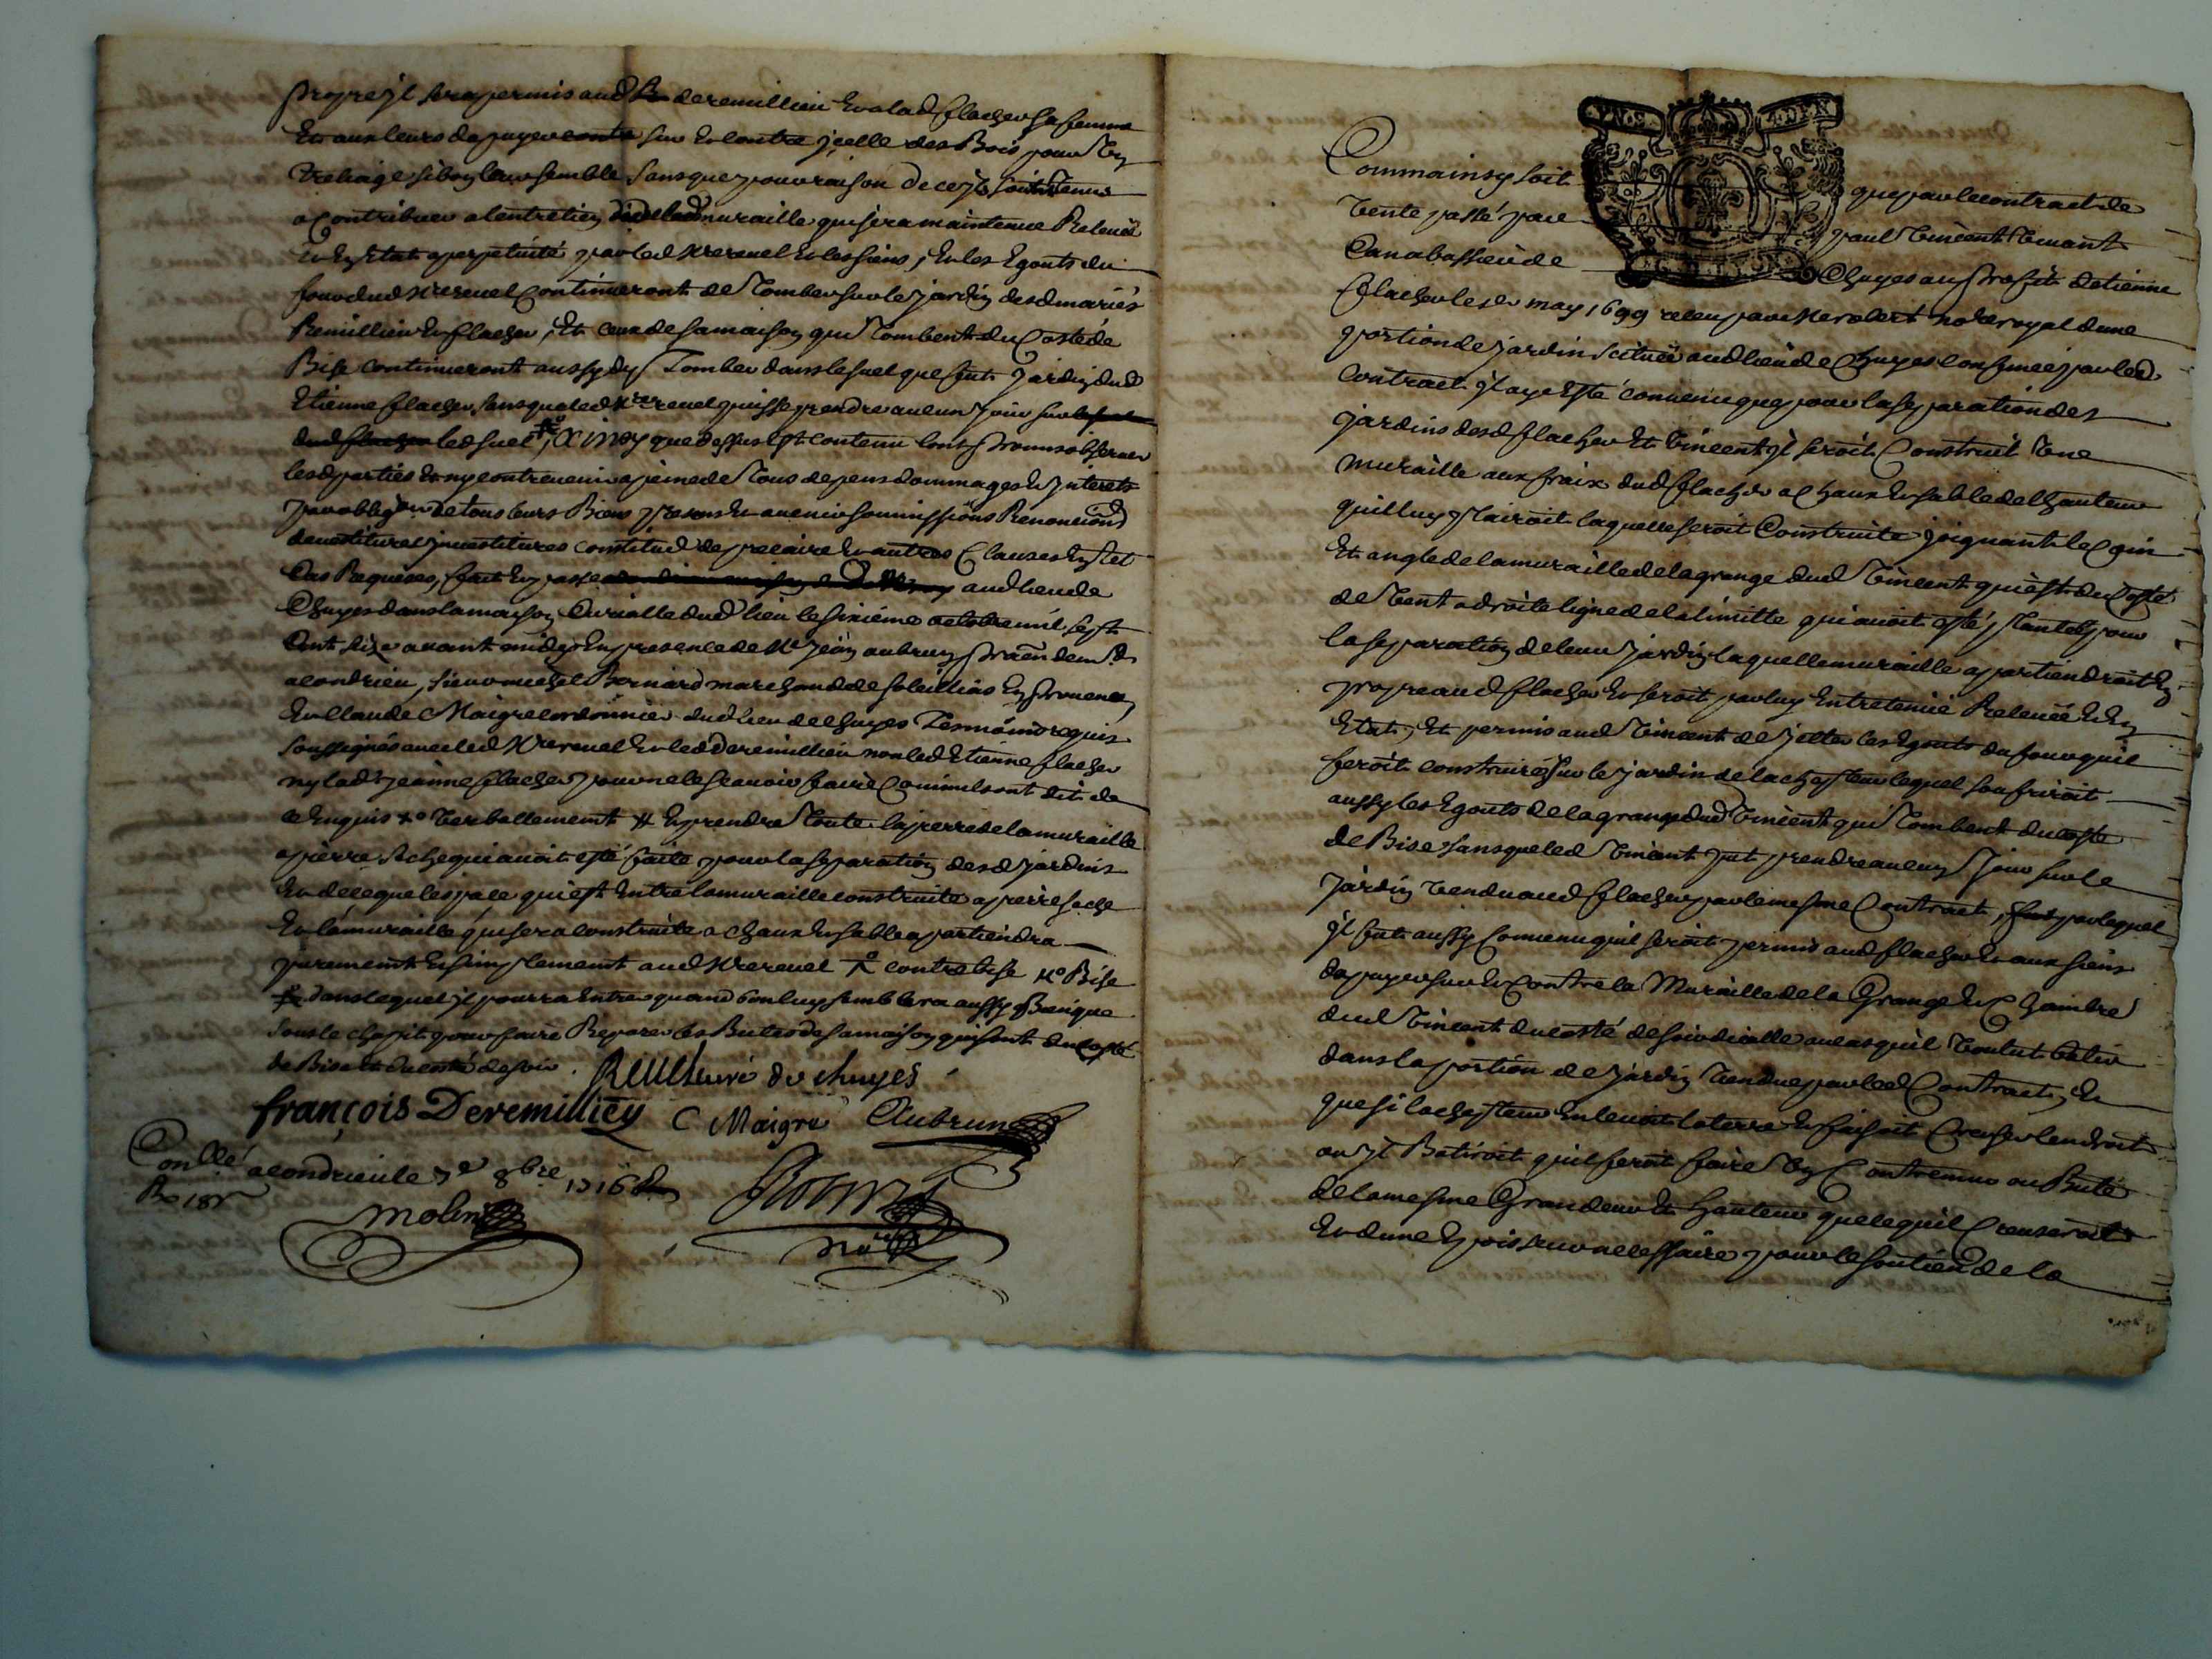 propre jl sera permis aud deremillieu et a lad flacher sa femme
Et aux leurs dapuyer contre sur et contre jcelle des Bois pour un
treliage si bon leur semble sans que pour raison de ce jls soint tenus
a Contribuer a lentretien de lad muraille qui sera maintenue Relevée
et en Etat a perpetuité par led Mre revel et les siens, et les Egouts du
four dud Mre revel Continueront de tomber sur le jardin desd mariés
Remillieu et flacher, Et ceux de sa maison qui tombent du Costé de
Bise continueront aussy dy tomber dans lesuel que fut jardin dud
Etienne flacher, sans que led Mre revel puisse prendre aucun jour sur
dud flacher led suel, Ainsy que dessus est contenu lont promis observer
lesd parties et ny contrevenir a peine de tous depens dommages et jnterets
par obligon de tous leurs Biens presens et avenir soumissions Renoncions
devestitures jnvestitures constitud de precaire et autres Clauses en tel
Cas Requises, fait et passé aud lieu de
Chuyes dans la maison Curialle dud lieu le sixiéme octobre mil sept
Cent seize avant midy En presence de Mr jean aubrun praen demt
a condrieu, sieur michel Bernard marchand de soleillias En provence,
Et Claude Maigre cordonnier dud lieu de Chuyes temoins requis
soussignés avec led Mre revel et led Deremillieu non led Etienne flacher
ny lad jeanne flacher pour ne le scavoir faire Comme ils ont dit de
ce Enquis verballement # En prendre toute la pierre de la muraille
a pierre seche qui avoit esté faite pour la separation desd jardins
et de ce que lespace qui est Entre la muraille construite a pierre seche
Et la muraille qui sera construite a chaux et sable apartiendra
purement et simplement aud Mre revel contre bise Bise
dans lequel jl pourra Entrer quand bon luy semblera aussy Bien que
sous le chapit pour faire Reparer les Butes de sa maison qui sont du costé
de Bise et du costé de soir.
Revel curé de chuyes
françois Deremillieu C Maigre Aubrun
Conllé a condrieu le 7e 8bre 1716
Molin
Comme ainsy soit que par le contract de
vente passé par paul vincent tenant
Canabassier de Chuyes au proffit detienne
flacher le may 1699 receu par Me robert nore royal dune
portion de jardin scituée aud lieu de Chuyes confinée par led
contract jl aye Esté convenu que pour la separation des
jardins desd flacher Et vincent jl seroit Construit une
muraille aux fraix dud flacher a chaux et sable de l hauteur
quil luy plairoit laquelle seroit Construite joignant le coin
Et angle de la muraille de la grange dud vincent qui est du Costé
de vent a droite ligne de la limitte qui avoit esté plantée pour
la separation de leur jardin laquelle muraille apartiendroit En
propre aud flacher et seroit par luy Entretenüe Relevée et En
Etat, Et permis aud vincent de jetter les Egouts du four quil
feroit construire sur le jardin de lachepteur lequel soufriroit
aussy les Egouts de la grange dud vincent qui tombent du costé
de Bise sans que led vincent put prendre aucun jour sur le
jardin vendu aud flacher par le mesme Contract, par lequel
jl fut aussy Convenu quil seroit permis aud flacher et aux siens
dapuyer sur et Contre la Muraille de la Grange et Chambre
dud vincent du costé de soir dicelle au cas quil voulut batir
dans la portion de jardin vendue par led Contract, Et
que si lachepteur enlevoit la terre et faisoit Creuser lendroit
ou jl Batiroit quil feroit faire un Contremur ou Bute
de la mesme Grandeur Et hauteur que ce quil Creuseroit
et dune Epoisseur necessaire pour le soutien de la